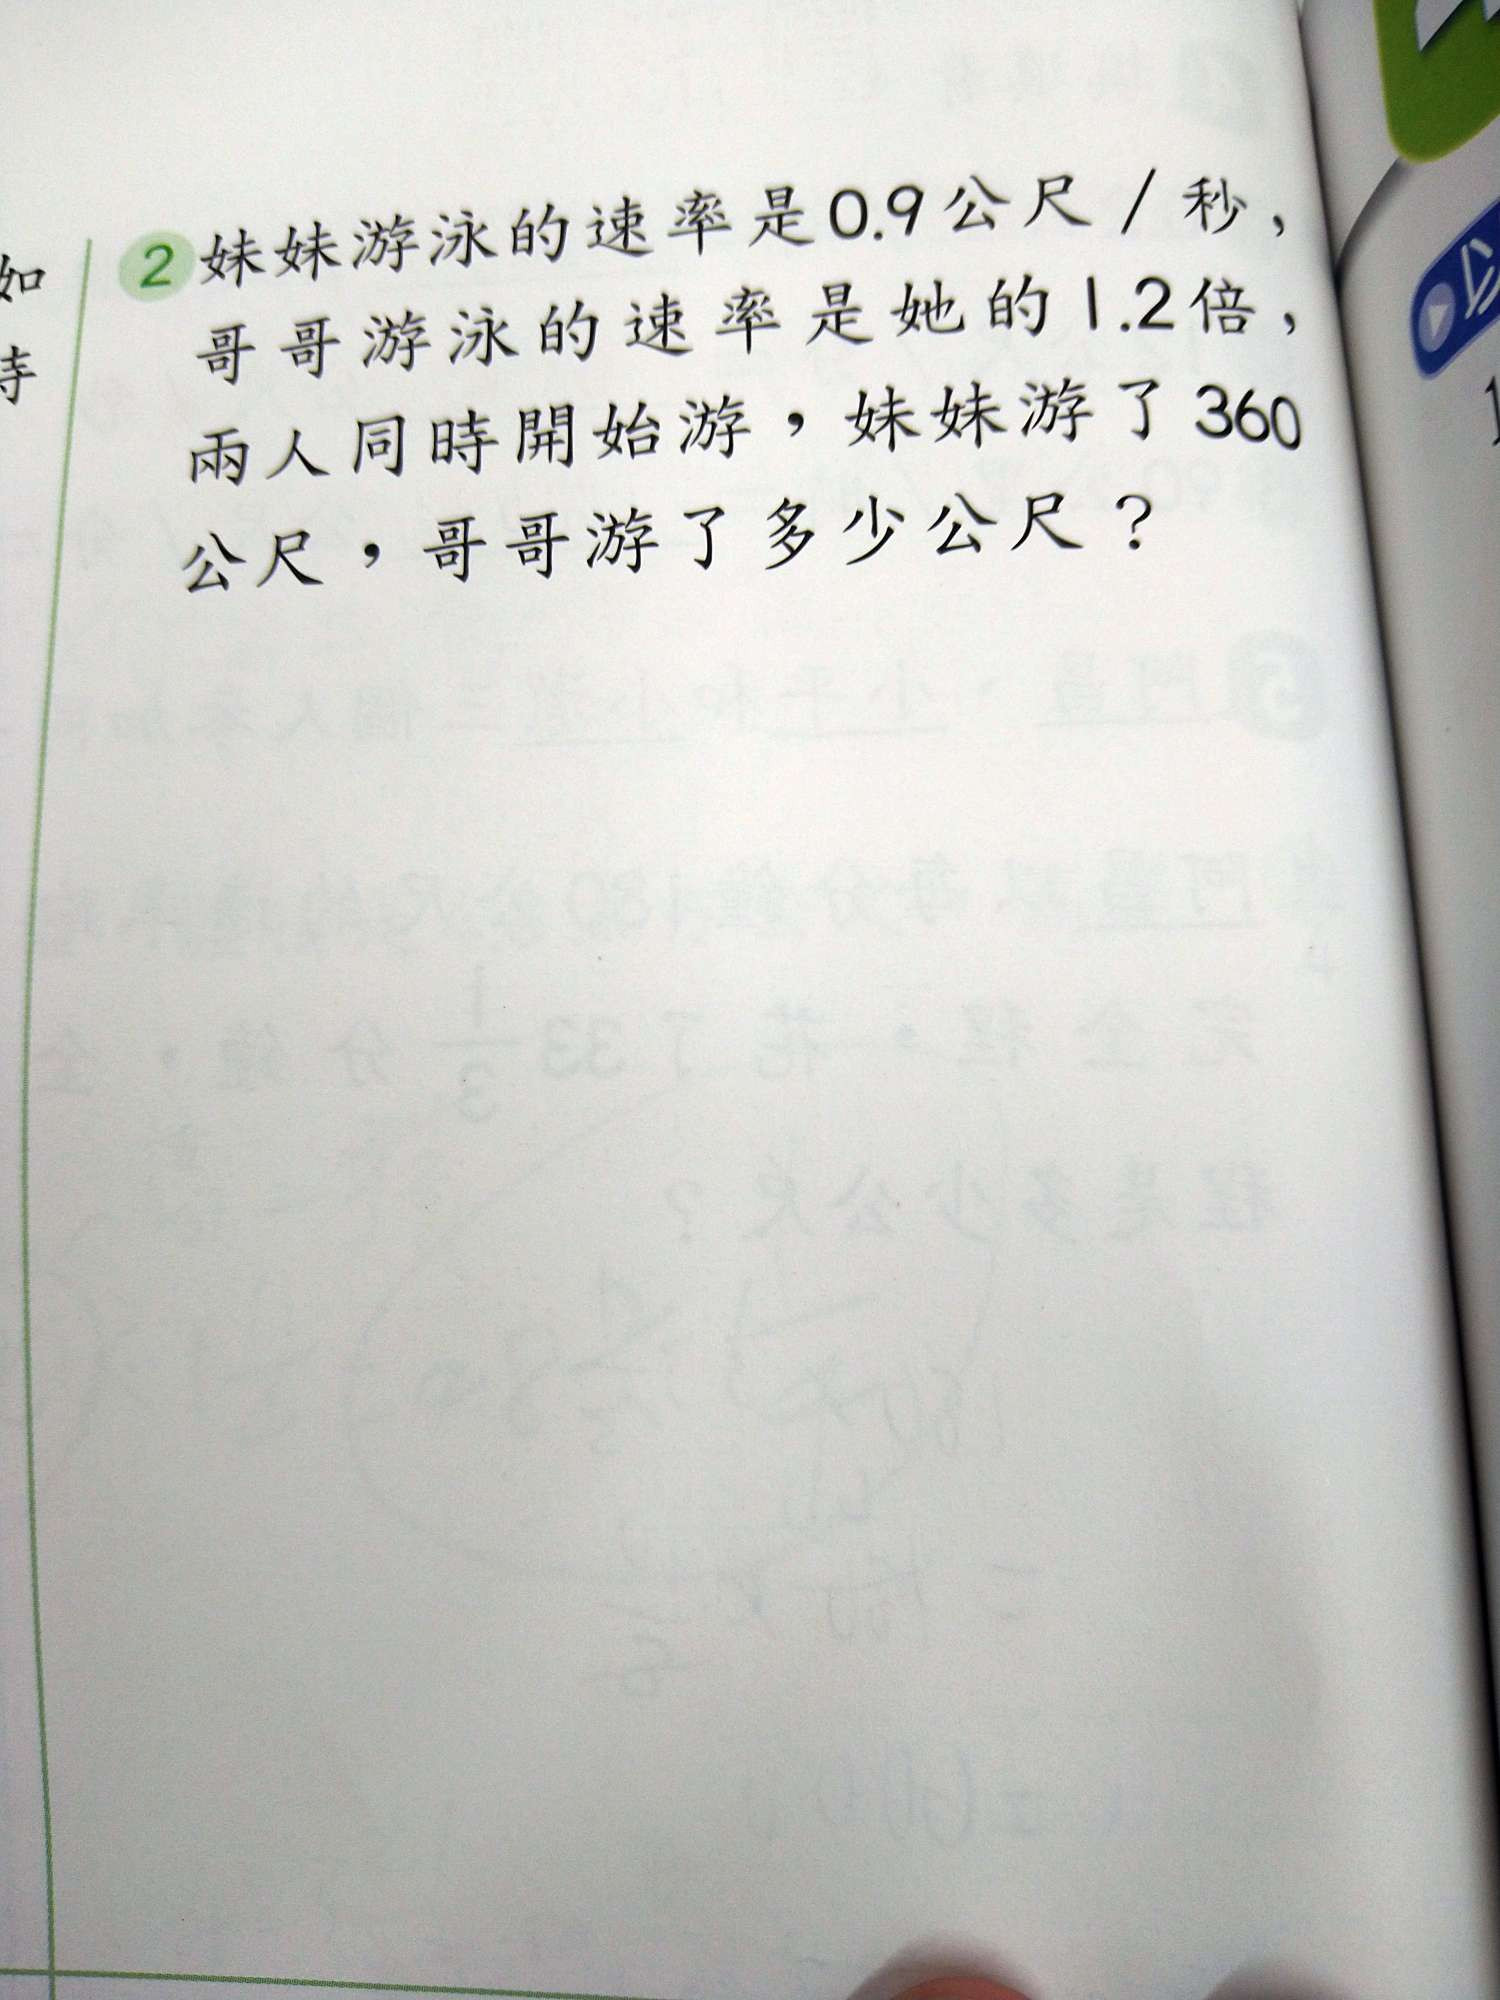 如
2 妹妹游泳的速率是0.9公尺/秒，
哥哥游泳的速率是她的1.2倍，
兩人同時開始游，妹妹游了360
公尺，哥哥游了多少公尺？